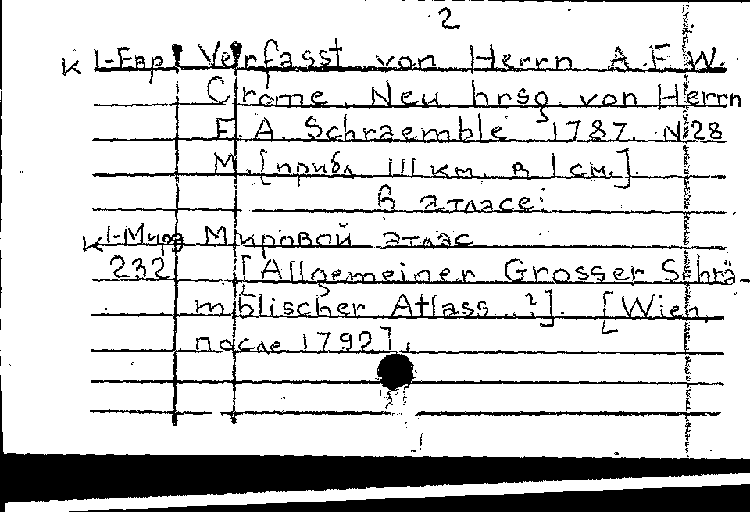 2
К 1-Евр Verfasst von Herrn A.F.W.
Crome. Neu hrsg. von Herrn
F. A. Schraemble 1787. N 28
М. [прибл III км. в 1 см.].
в атласе:
К 1-Мира Мировой атлас
232 [Allgemeiner Grosser Schrä-
mblischer Atlass..?]. [Wien,
после 1792].